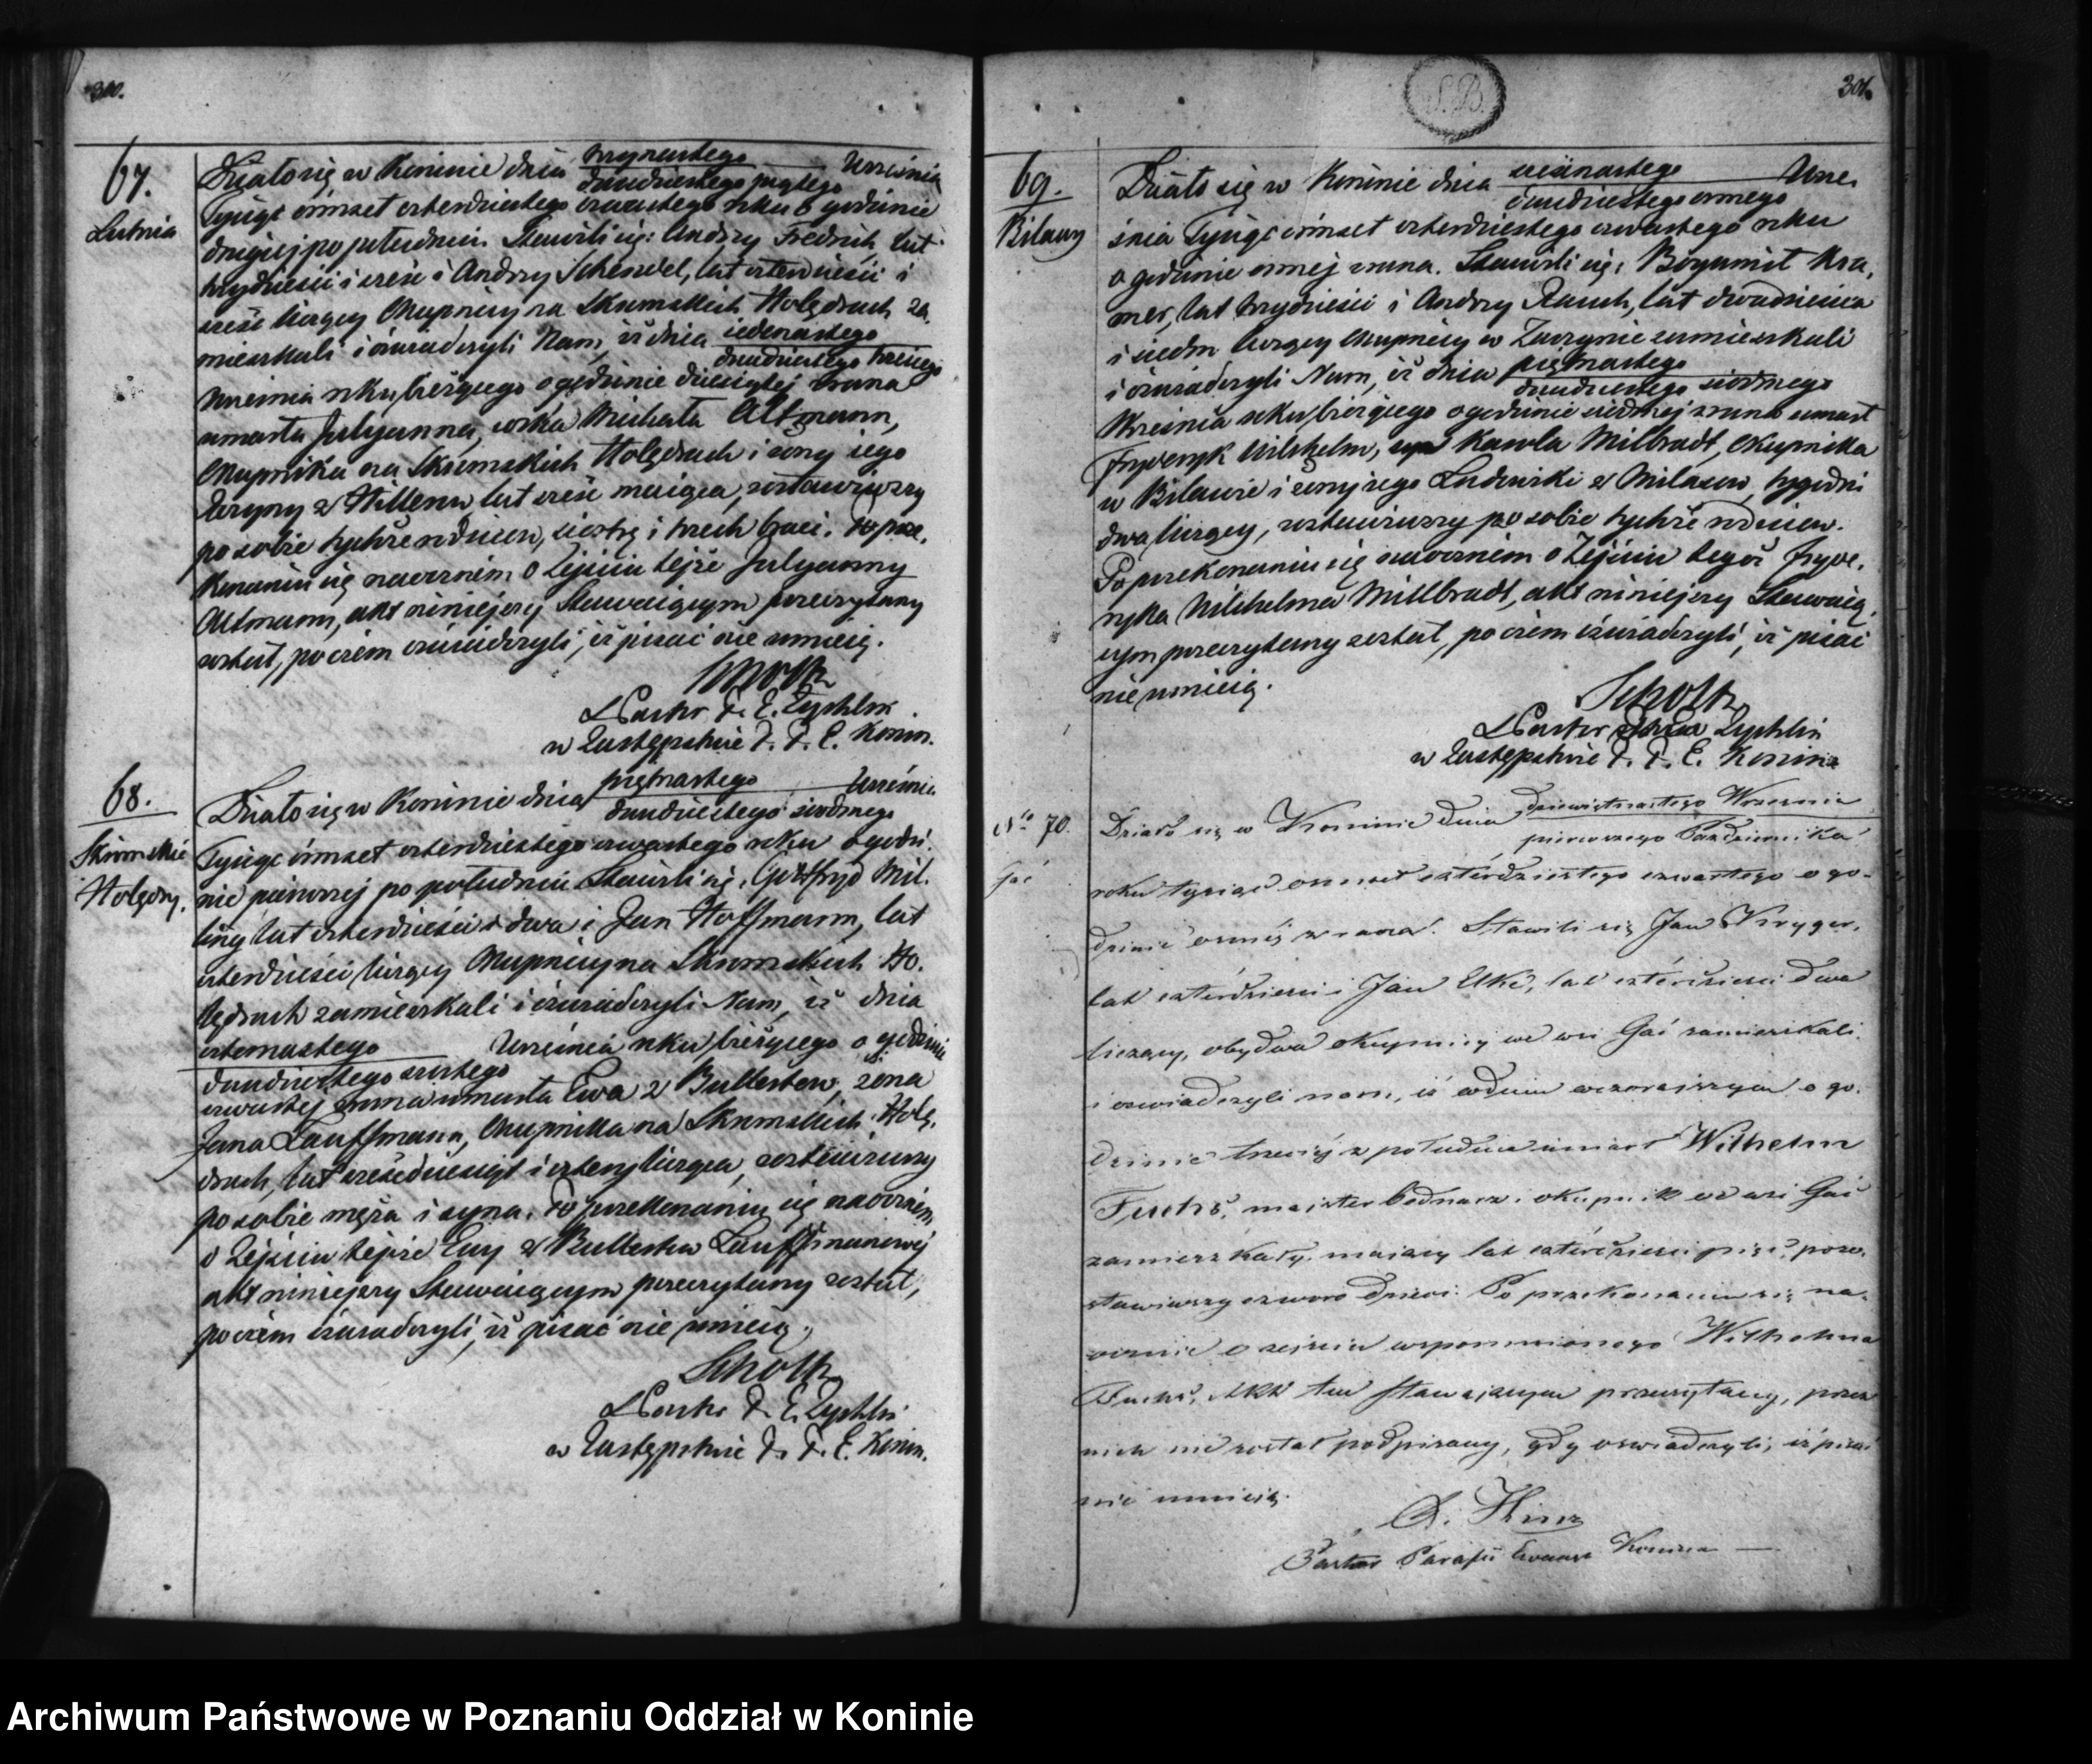 300.
67.
Lutnia
Działo się w Koninie dnia trzynastego Września
dwudziestego piątego
Tysiąc ośmset czterdziestego czwartego roku o godzinie
drugiej po południu. Stawili się: Andrzy Fredrich, lat
trzydzieści i sześć i Andrzy Schendel, lat czterdzieści i
sześć liczący Okupnicy na Skumskich Holędrach za,
mieszkali i oświadczyli Nam, iż dnia jedenastego
dwudziestego trzeciego
Września roku bieżącego o godzinie dziesiątej zrana
umarła Julyanna, córka Michała Altmann,
Okupnika na Skumskich Holędrach i żony jego
z lat sześć mająca, zostawiwszy
po sobie tychże rodziców, siostrę i trzech braci. Po prze,
konaniu się naocznem o Zejściu tejże Julyanny
Altmann, akt niniejszy Stawaiącym przeczytany
został, poczém oświadczyli, iż pisać nie umieią.
Scholtz
Pastor P. E. Zychlin
w Zastępstwie P. P. E. Konin.
68.
Skumskie
Holędry.
Działo się w Koninie dnia piętnastego Września
dwudziestego siódmego
Tysiąc ośmset czterdziestego czwartego roku o godzi,
nie pierwszej po południu. Stawili się, Gottfryd Mil,
lat czterdzieści i dwa i Jan Hoffmann, lat
czterdzieści liczący Okupnicy na Skumskich Ho,
lędrach zamieszkali i oświadczyli Nam, iż dnia
czternastego Września roku bieżącego o godzinie
dwudziestego szóstego
czwartej zrana umarła Ewa z żona
Jana Lauffmann, Okupnika na Skumskich Holę,
drach, lat sześćdziesiąt i cztery licząca, zostawiwszy
po sobie męża i syna. Po przekonaniu się naocznem
o Zejściu tejże Ewy z Lauffmanowej
akt niniejszy Stawaiącym przeczytany został,
poczém oświadczyli, iż pisać nie umieią.
Scholtz
Pastor P. E. Zychlin
w Zastępstwie P. P. E. Konin.
S.B.
301.
69.
Bilawy
Działo się w Koninie dnia szesnastego Wrze,
dwudziestego ósmego
śnia Tysiąc ośmset czterdziestego czwartego roku
o godzinie ósmej zrana. Stawili się: Bogumił Kra,
mer, lat trzydzieści i Andrzy Rauch, lat dwadzieścia
i siedm liczący Okupnicy w zamieszkali
i oświadczyli Nam, iż dnia piętnastego
dwudziestego siódmego
Września roku bieżącego o godzinie siódmej zrana umarł
Fryderyk Wilhelm, syn Karola Milbradt, Okupnika
w Bilawie i żony jego Ludwiki z tygodni
dwa liczący, zostawiwszy po sobie tychże rodziców.
Po przekonaniu się naocznem o Zejściu tegoż Fryde,
ryka Wilhelma Millbradt, akt niniejszy Stawaią,
cym przeczytany został, poczém oświadczyli, iż pisać
nie umieią.
Scholtz
Pastor Zychlin
w Zastępstwie P. P. E. Konina
No 70.
Gać
Działo się w Koninie dnia dziewiętnastego Września
pierwszego Października
roku tysiąc ośmset czterdziestego czwartego o go-
dzinie ósmej zrana. Stawili się Jan Kryger,
lat czterdzieści i Jan Elke, lat czterdzieści dwa
liczący, obydwa okupnicy we wsi Gać zamieszkali.
i oświadczyli nam, iż w dniu wczorajszym o go.
dzinie trzeciej z południa umarł Wilhelm
Fuchs, majster bednarz i okupnik we wsi Gać
zamieszkały, mający lat czterdzieści pięć, pozo,
stawiwszy czworo dzieci. Po przekonaniu się na,
ocznie o zejściu wspomnionego Wilhelma
Fuchs, Akt ten stawającym przeczytany, przez
nich nie został podpisany, gdy oświadczyli, iż pisać
nie umieią.
Pastor Parafii Ewang. Konina
Archiwum Państwowe w Poznaniu Oddział w Koninie